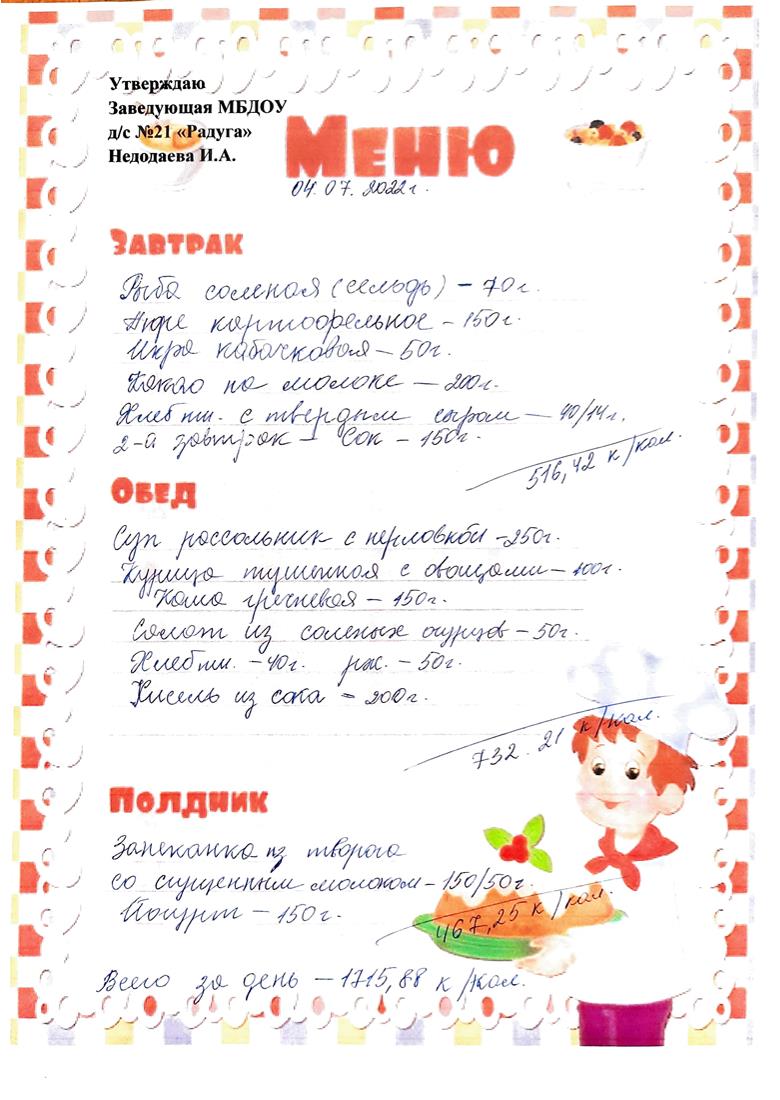 Утверждаю
Заведующая МБДОУ
д/с №21 «Радуга»
Недодаева И.А.
Меню
04.07.2022г.
Завтрак
Рыба соленая (сельдь) – 70г.
Пюре картофельное – 150г.
Икра кабачковая – 50г.
Какао на молоке – 200г.
Хлеб пш. с твердым сыром – 40/14г.
2-й завтрак – Сок – 150г.
516,42 к/кал.
Обед
Суп рассольник с перловкой – 250г.
Курица тушенная с овощами – 100г.
Каша гречневая – 150г.
Салат из соленых огурцов – 50г.
Хлеб пш. – 40г. рж. – 50г.
Кисель из сока – 200г.
732.21 к/кал.
Полдник
Запеканка из творога
со сгущенным молоком – 150/50г.
Йогурт – 150г.
467,25 к/кал.
Всего за день – 1715,88 к/кал.